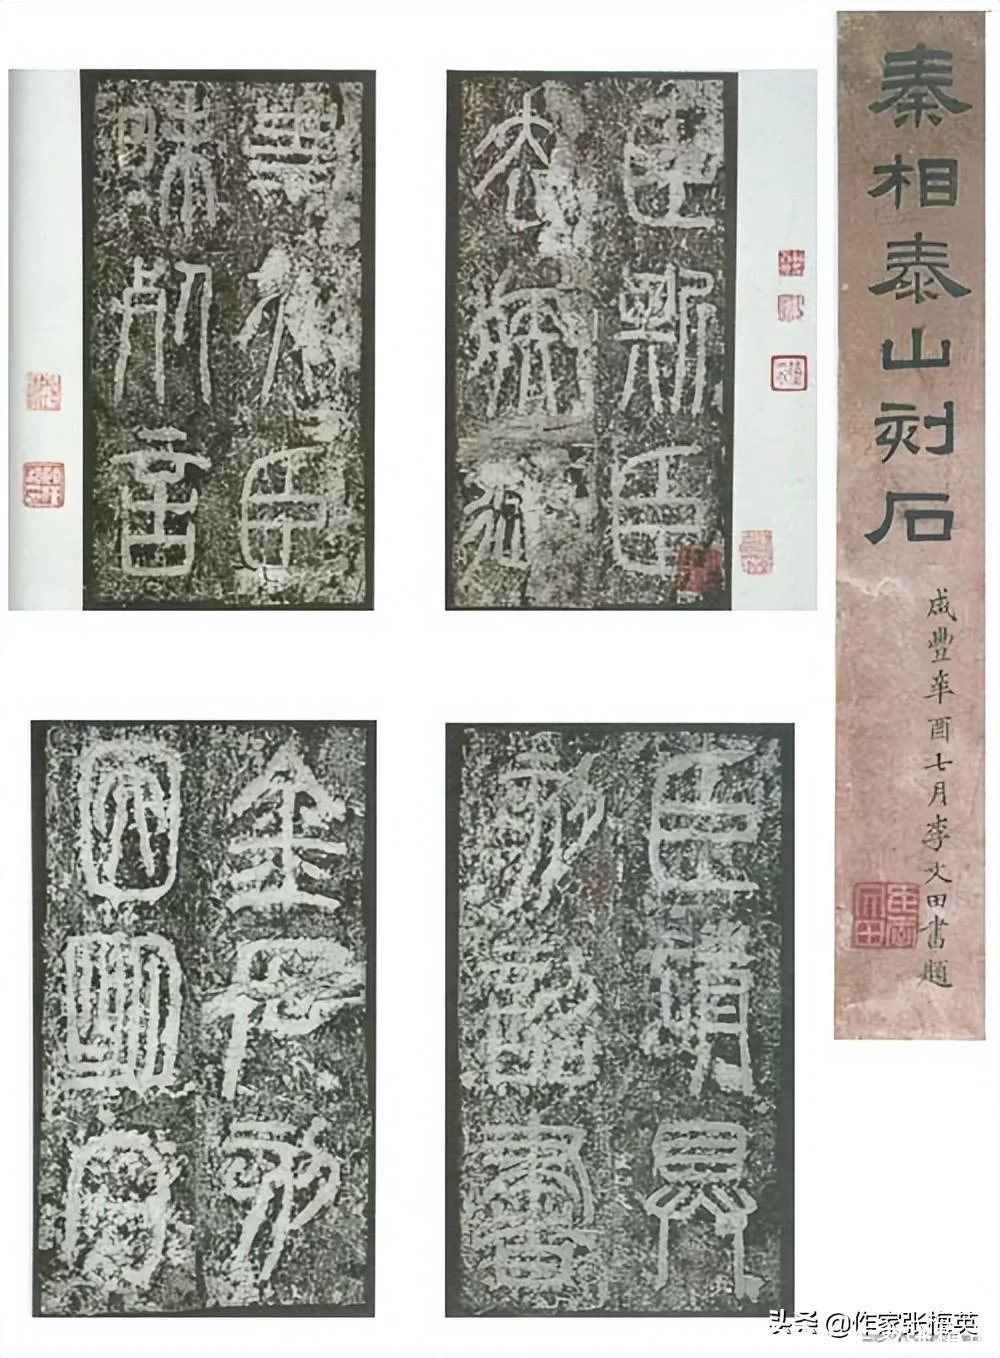 秦相泰山刻石
咸豐辛酉七月李文田書題
臣斯臣
去疾御
史夫臣
昧死言
臣請具
刻詔書
金石刻
因明白
头条 @作家张梅英